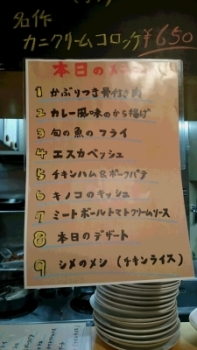 名作
カニクリームコロッケ ¥650
本日のメニュー
1 かぶりつき骨付き肉
2 カレー風味のから揚げ
3 旬の魚のフライ
4 エスカベッシュ
5 チキンハム&ポークパテ
6 キノコのキッシュ
7 ミートボールトマトクリームソース
8 本日のデザート
9 シメのメシ (チキンライス)